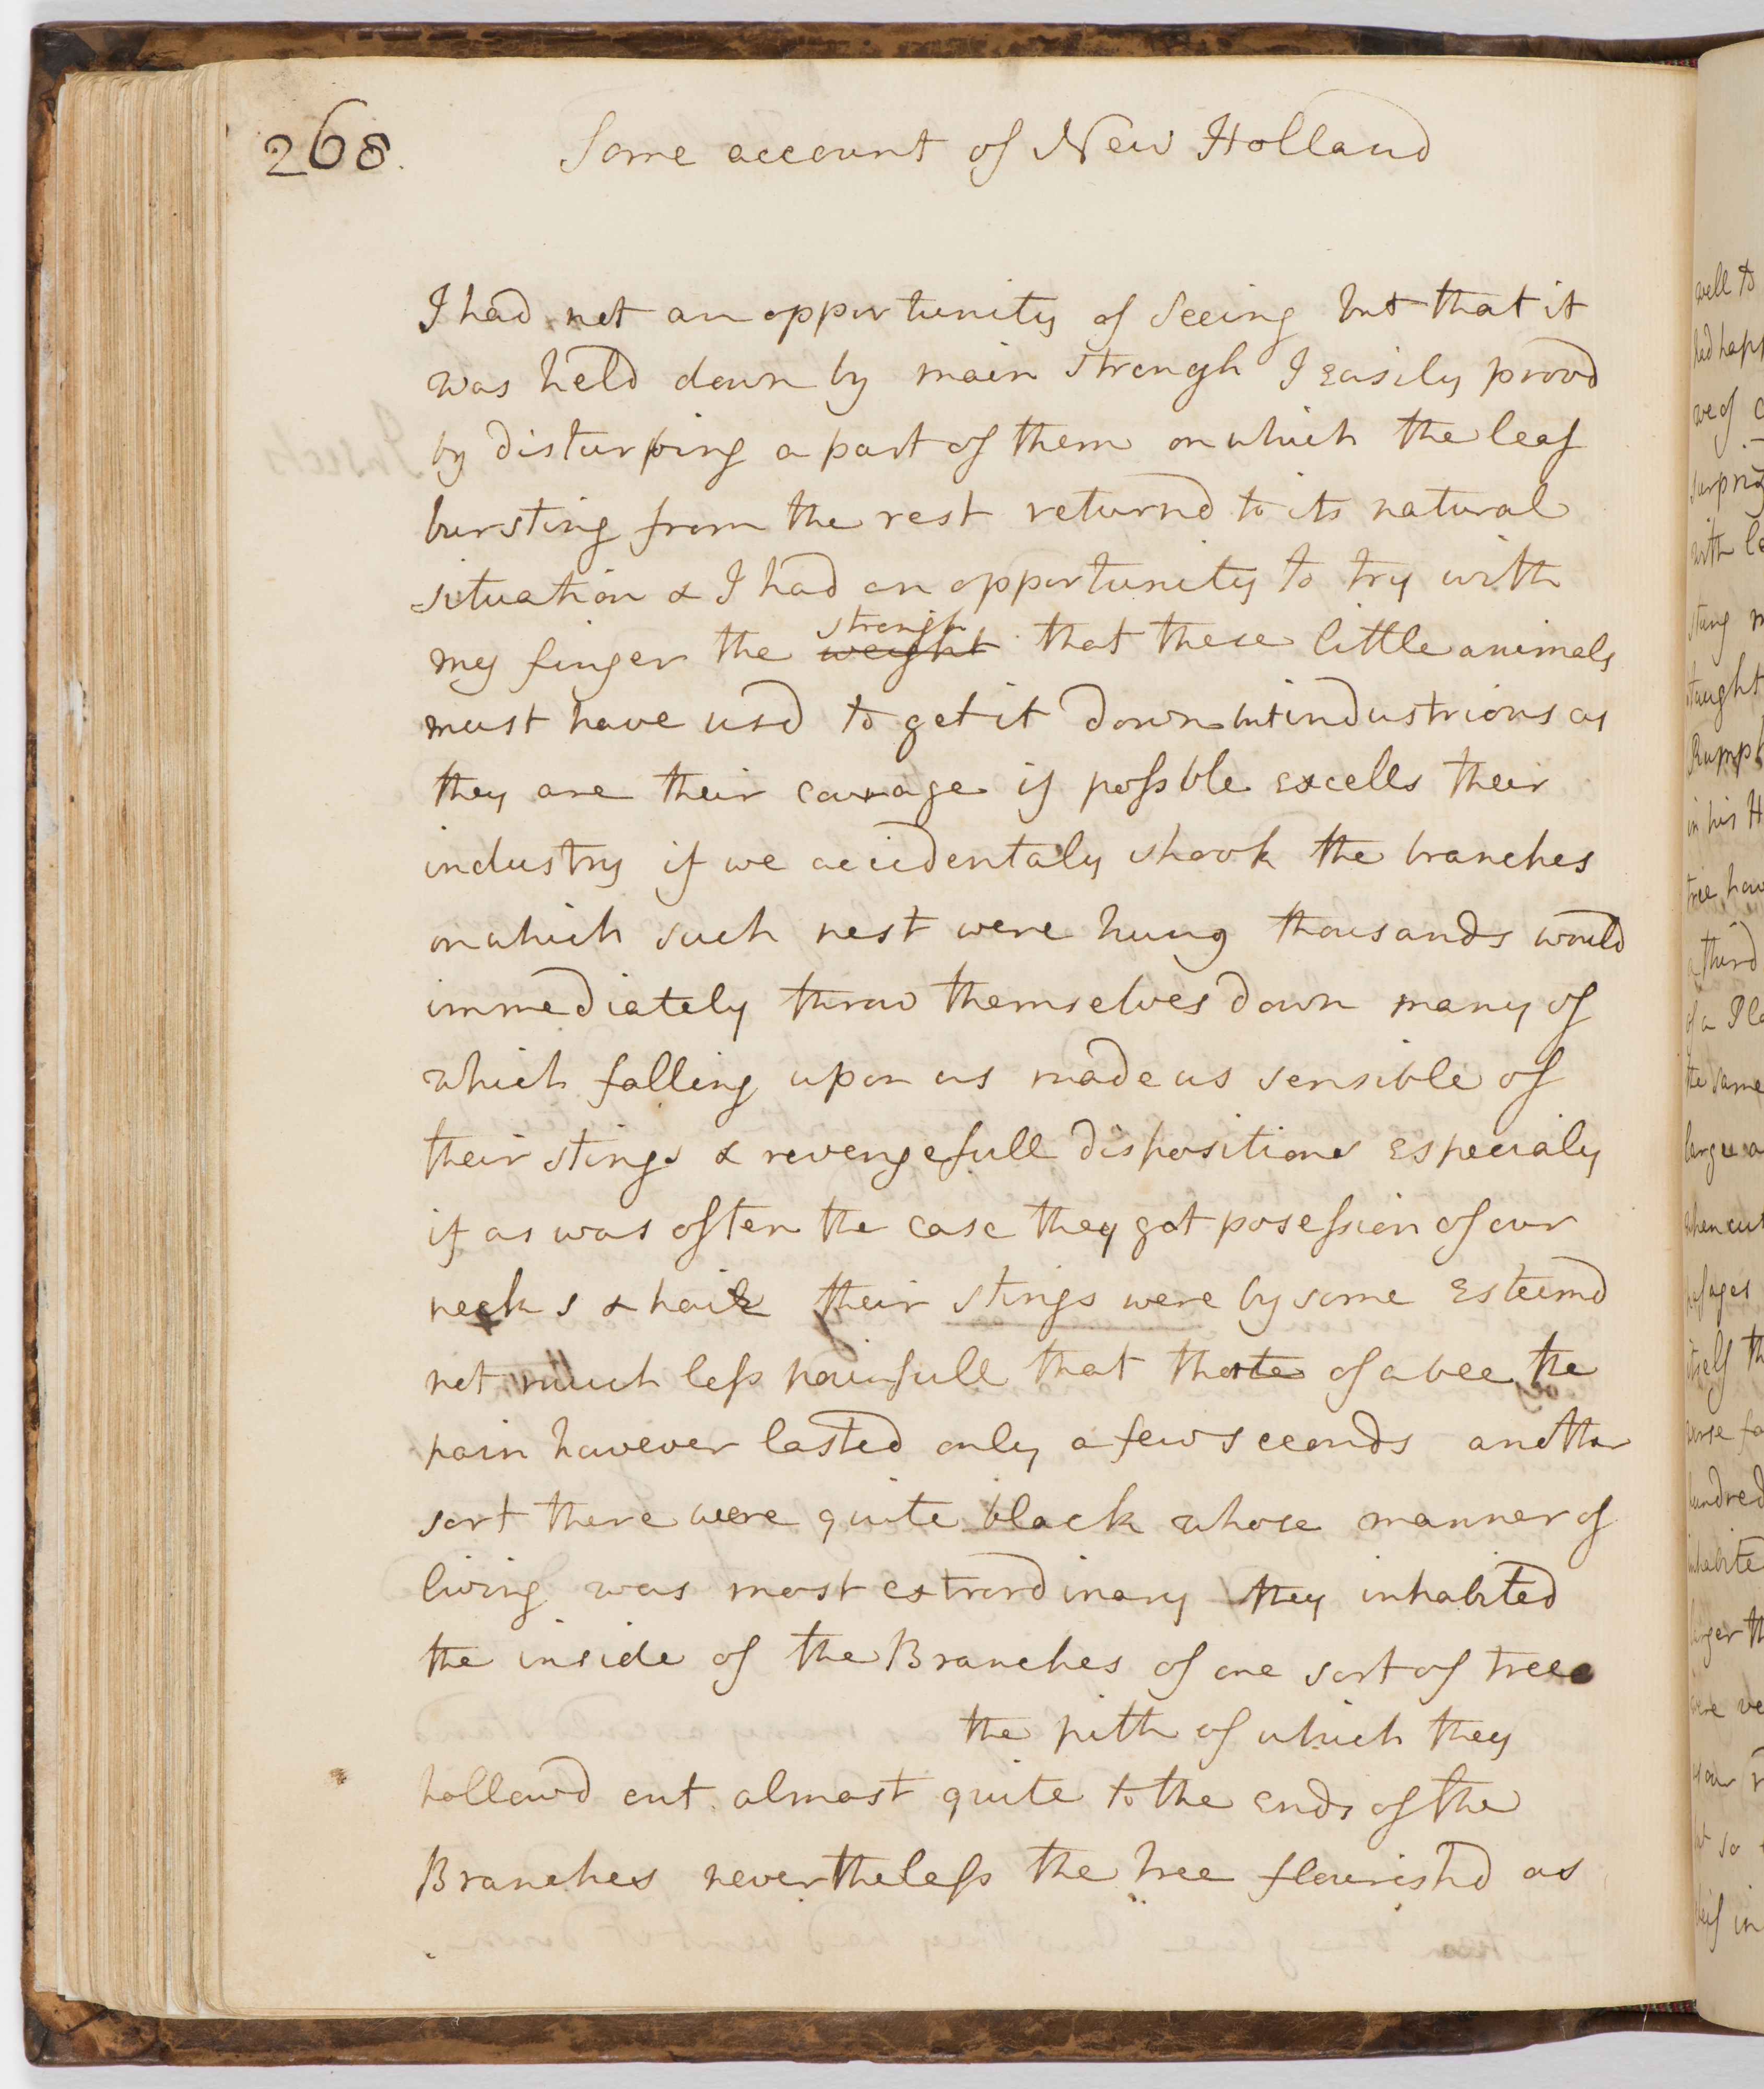 268.
Some account of New Holland
I had not an opportunity of seeing but that it
was held down by main strengh I easily provd
by disturbing a part of them on which the leaf
bursting from the rest returnd to its natural
situation & I had an opportunity to try with
my finger the ~~weight~~ strengh that these little animals
must have usd to get it down but industrious as
they are their courage if possble excells their
industry if we accidentaly shook the branches
on which such nest were hung thousands would
immediately throw themselves down many of
which falling upon us made us sensible of
their stings & revengefull dispositions especialy
if as was often the case they got posession of our
necks & hair their stings were by some esteemd
not much less painfull that those of a bee the
pain however lasted only a few seconds another
sort there were quite black whose manner of
living was most extrordinary they inhabited
the inside of the Branches of one sort of tree
the pith of which they
hollowd out almost quite to the ends of the
Branches nevertheless the tree flourishd as
well to
had hap
we of
surpriz
with le
stung m
taught
Rumph
in his H
tree, how
a third
of a Pla
the same
large a
when cut
itself th
worse fa
hundred
inhabite
larger th
were ve
as our
but so